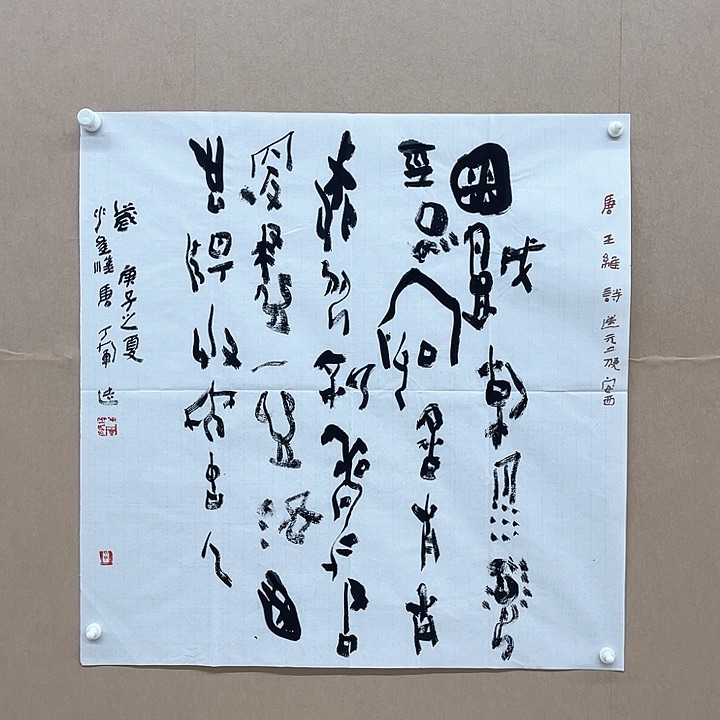 唐 王維 詩 送元二使安西
渭城朝雨浥
輕塵客舍青青
柳色新勸君
更盡一杯酒西
出陽關無故人
歲 庚子之夏